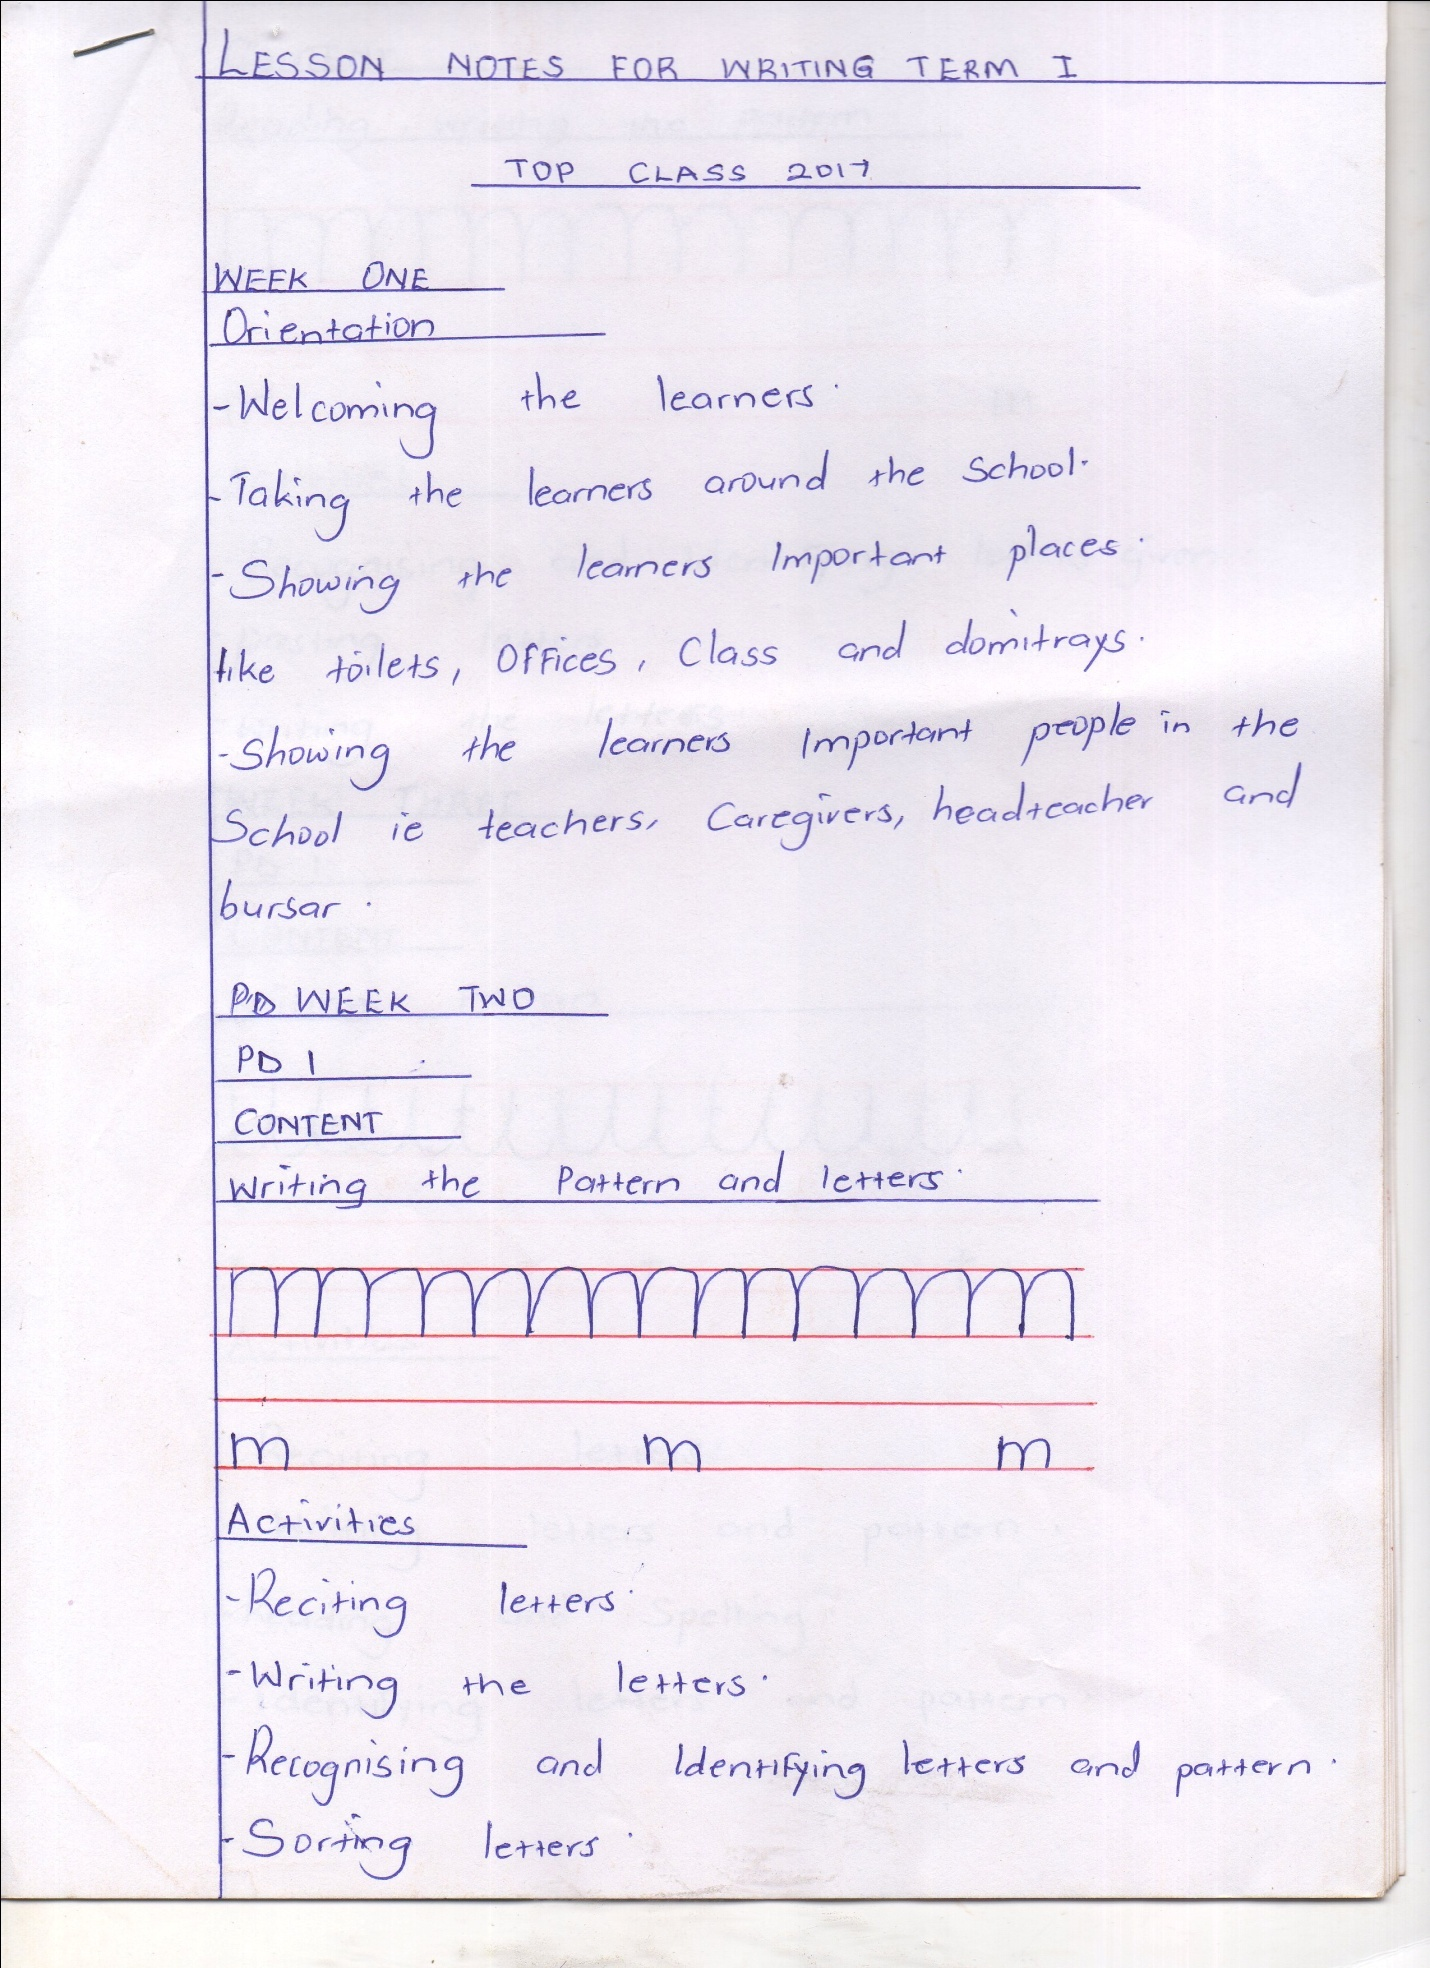 LESSON NOTES FOR WRITING TERM I
TOP CLASS 2017
WEEK ONE
Orientation
-Welcoming the learners.
-Taking the learners around the School.
-Showing the learners Important places.
like toilets, Offices, Class and domitrays.
-Showing the learners Important people in the
School ie teachers, Caregivers, headteacher and
bursar.
PD WEEK TWO
PD 1
CONTENT
Writing the Pattern and letters.
mmmmmmmm
m m m
Activities
-Reciting letters.
-Writing the letters.
-Recognising and Identifying letters and pattern.
-Sorting letters.